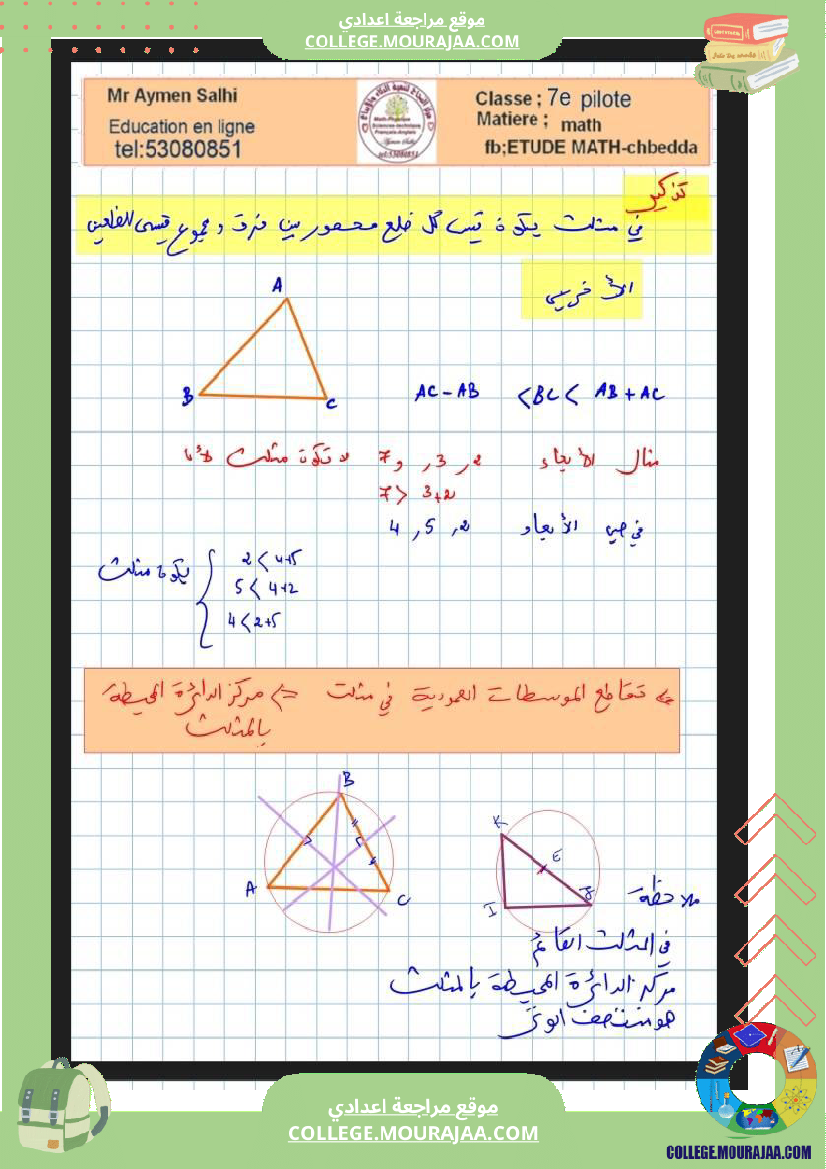 موقع مراجعة اعدادي
COLLEGE.MOURAJAA.COM
Mr Aymen Salhi
Education en ligne
tel:53080851
Classe ; 7e pilote
Matiere ; math
fb;ETUDE MATH-chbedda
تذكير
في مثلث يكون قيس كل ضلع محصور بين فرق و مجموع قيسي الضلعين
الأخريين
A
B
C
AC - AB < BC < AB + AC
مثال الأبعاد 2 , 3 , و 7 لا تكون مثلث لأن
7 > 3+2
في حين الأبعاد 2 , 5 , 4
2 < 4+5
5 < 4+2
4 < 2+5
يكون مثلث
تقاطع الموسطات العمودية في مثلث => مركز الدائرة المحيطة
بالمثلث
B
A
C
K
E
I
J
ملاحظة
في المثلث القائم
مركز الدائرة المحيطة بالمثلث
هو منتصف الوتر
موقع مراجعة اعدادي
COLLEGE.MOURAJAA.COM
COLLEGE.MOURAJAA.COM